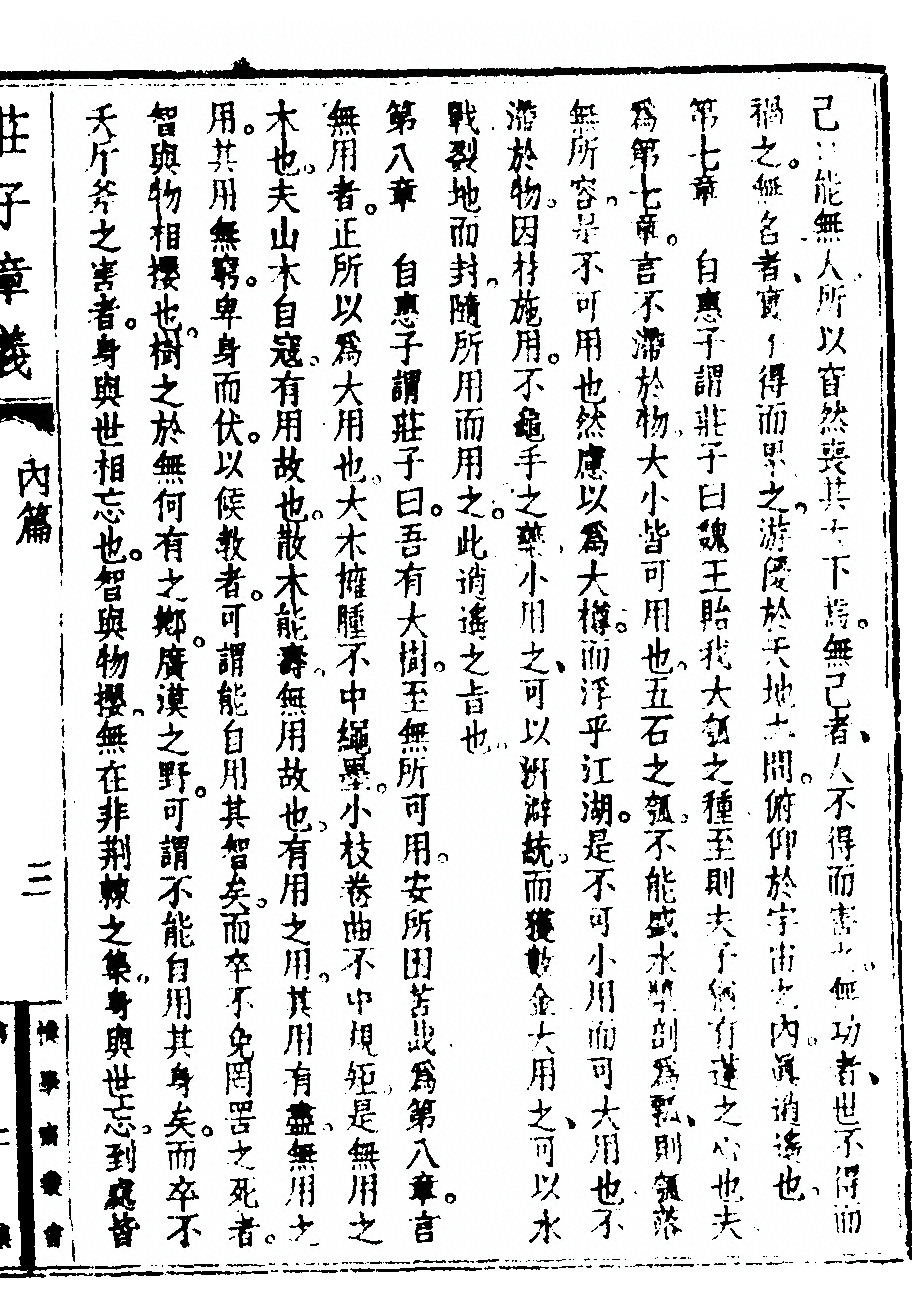 己。能無人。所以窅然喪其天下焉。無己者、人不得而害之。無功者、世不得而
禍之。無名者、寶不得而累之。游優於天地之間。俯仰於宇宙之內。眞逍遙也。
第七章　自惠子謂莊子曰魏王貽我大瓠之種至則夫子猶有蓬之心也夫
爲第七章。言不滯於物。大小皆可用也。五石之瓠。不能盛水漿剖爲瓢、則瓠落
無所容。是不可用也然慮以爲大樽。而浮乎江湖。是不可小用而可大用也不
滯於物。因材施用。不龜手之藥。小用之、可以洴澼絖。而獲數金大用之、可以水
戰裂地而封。隨所用而用之。此逍遙之旨也。
第八章　自惠子謂莊子曰。吾有大樹。至無所可用。安所困苦哉爲第八章。言
無用者。正所以爲大用也。大木擁腫不中繩墨。小枝卷曲不中規矩。是無用之
木也。夫山木自寇。有用故也。散木能壽。無用故也。有用之用。其用有盡。無用之
用。其用無窮。卑身而伏。以候敖者。可謂能自用其智矣。而卒不免罔罟之死者。
智與物相攖也。樹之於無何有之鄉。廣漠之野。可謂不能自用其身矣。而卒不
夭斤斧之害者。身與世相忘也。智與物攖。無在非荆棘之集。身與世忘。到處皆
莊子章義
內篇
三
慎學齋叢書